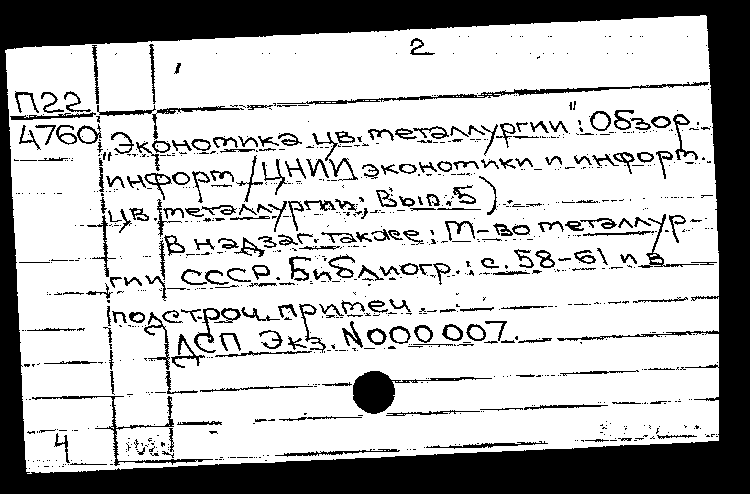 2
П22
4760
"Экономика цв. металлургии": Обзор.
информ. / ЦНИИ экономики и информ.
цв. металлургии; Вып. 5).
В надзаг. также: М-во металлур-
гии СССР. Библиогр.: с. 58-61 и в
подстроч. примеч.
ДСП. Экз. N000007.
4